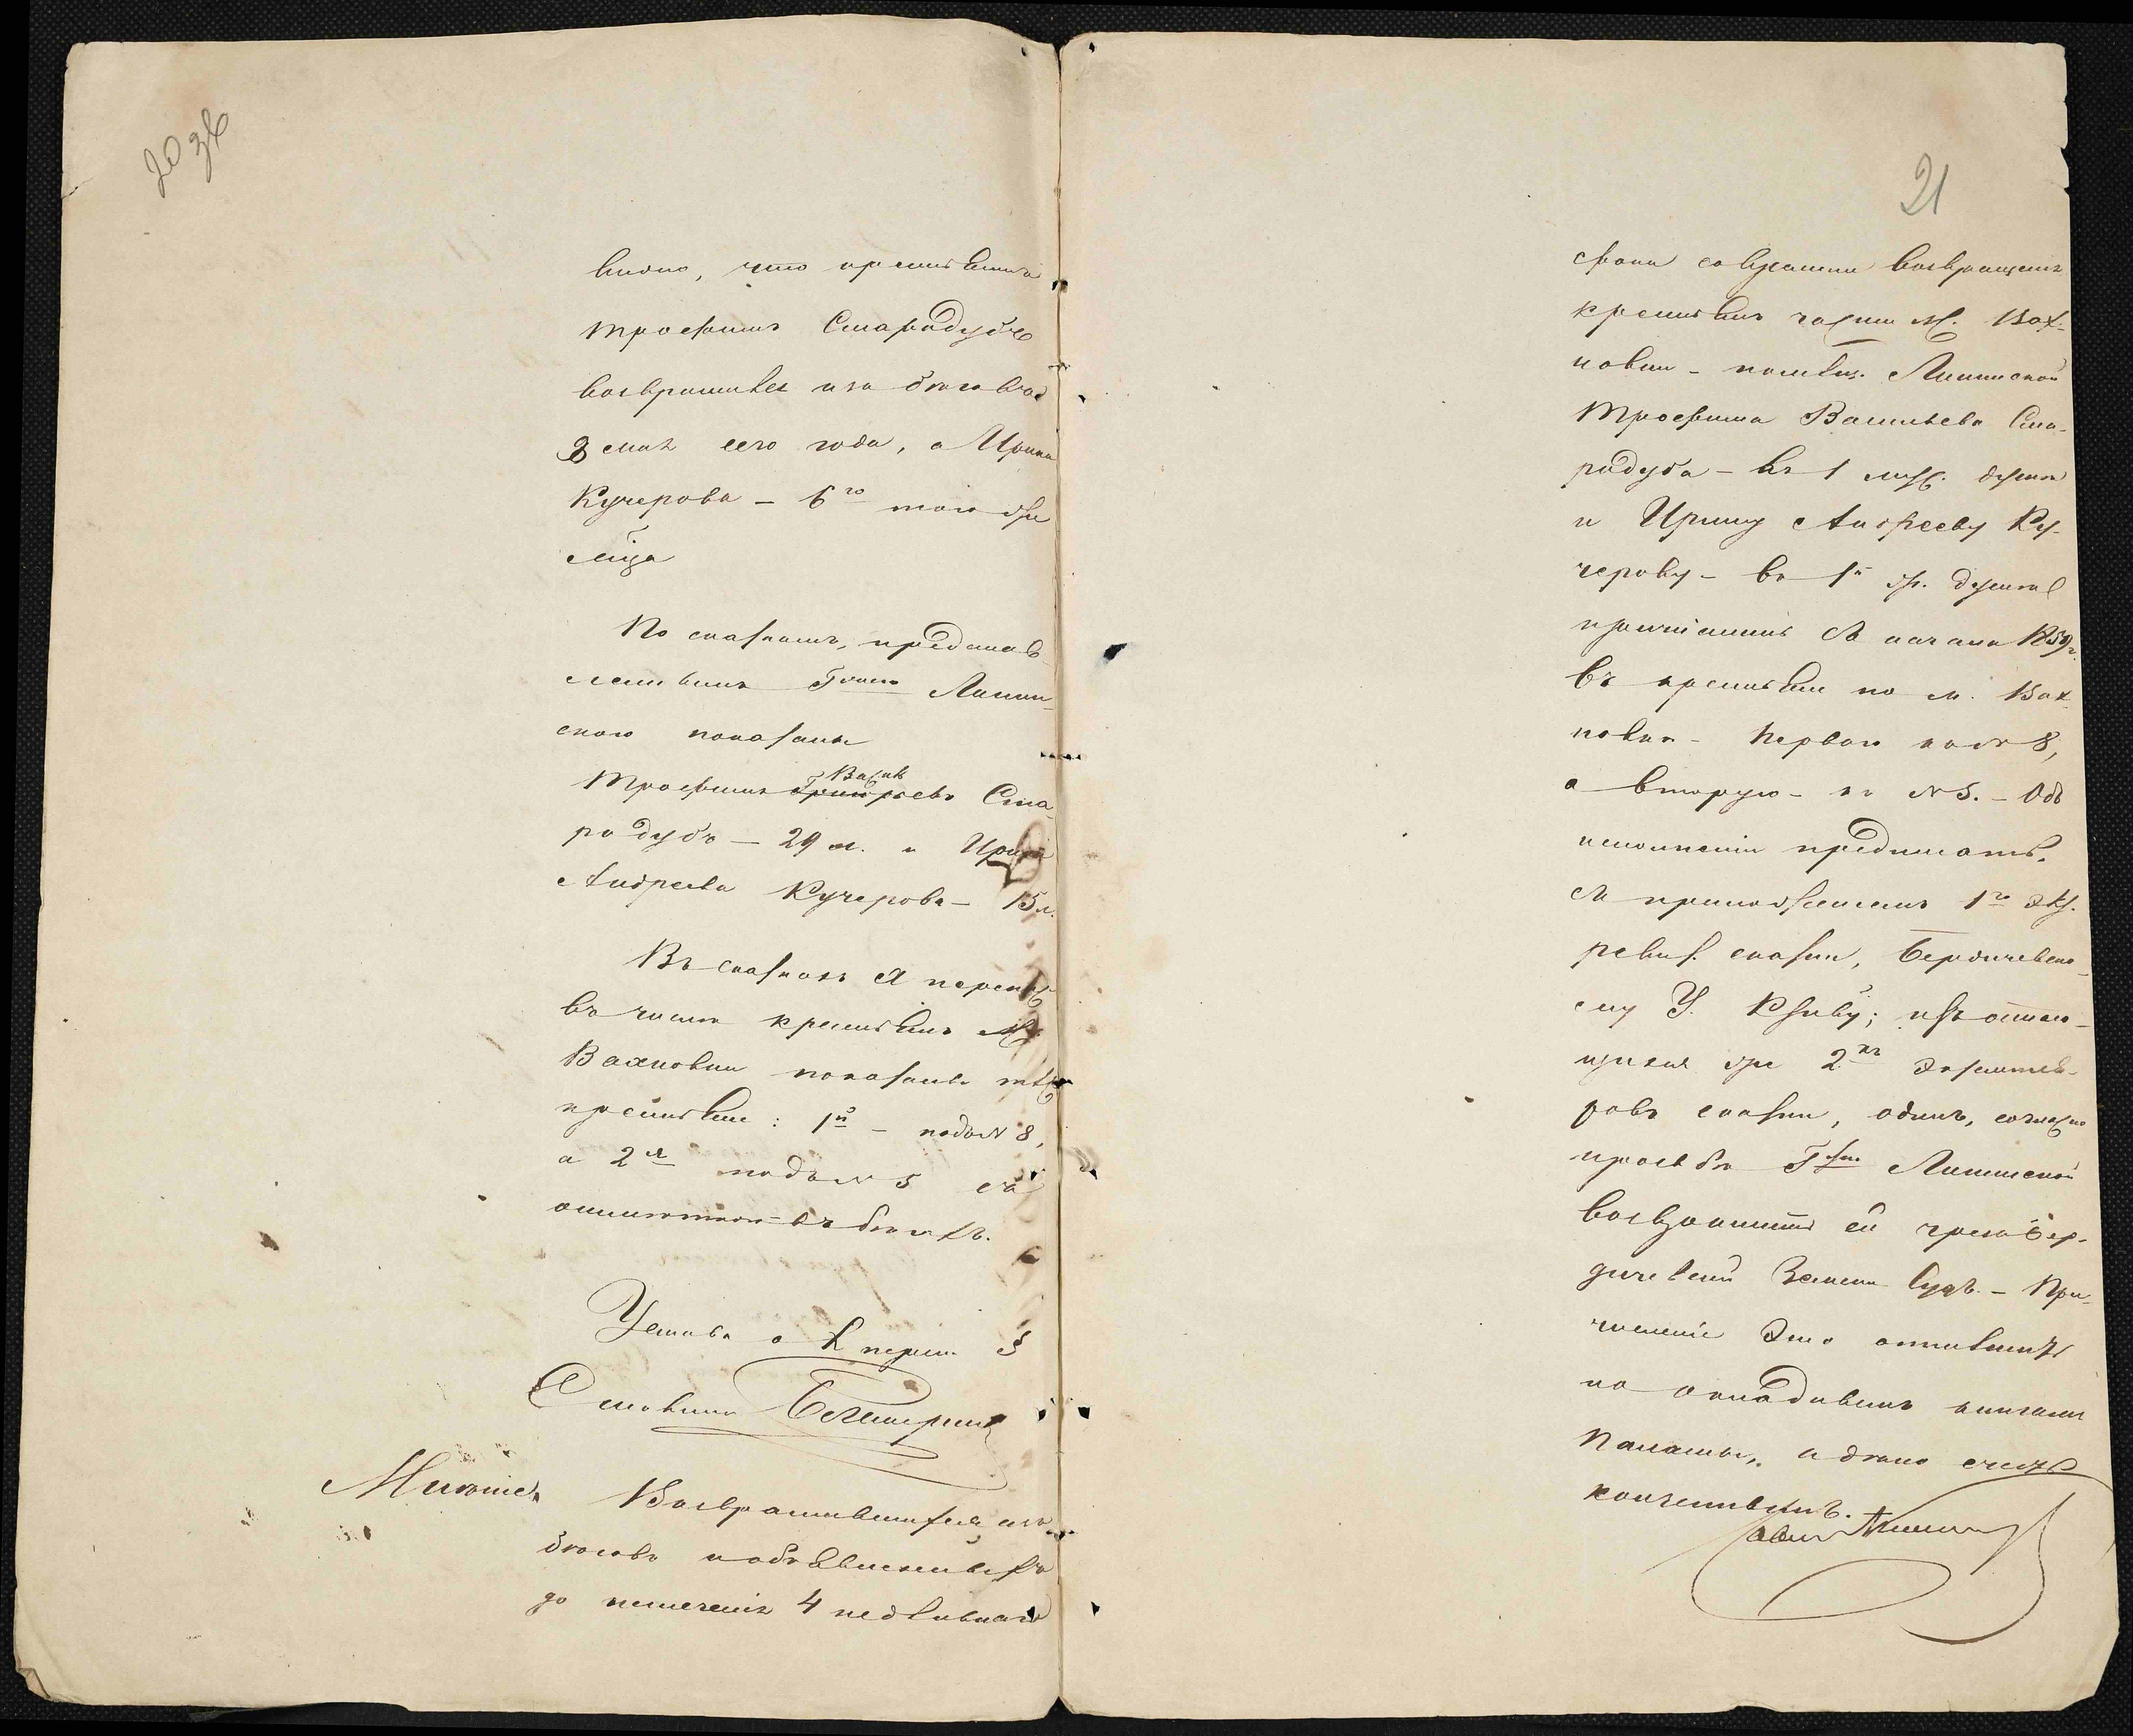 20 зв
видно, что крестьянинъ
Трофимъ Стародубъ
возвратился изъ бѣговъ
8 мая сего года, а Ирина
Кучерова – 6го того же
мѣца
По сказкамъ, представ
леннымъ Гжею Липин
ского показаны
Василь
Трофимъ Григорьевъ Ста
родубъ – 29 л. и Ирина
Андреева Кучерова – 15 л.
Въ сказкахъ X перепис
въ числѣ крестьянъ м.
Вахновки показаны тѣ
крестьяне: 1й – подъ № 8,
а 2я подъ № 5 съ
отмѣткою въ бѣгахъ.
Уставъ о перепи
Столонач
Мнѣніе. Возвратившихся изъ
бѣговъ и объявленныхъ
до истеченія 4 недѣльнаго
21
срока со времени возвращенія
крестьянъ части м. Вах-
новки – помѣщ. Липинской
Трофима Васильева Ста-
родуба – въ 1 муж. душѣ
и Ирину Андрееву Ку-
черову – въ 1й ж. душѣ
причислить съ начала 1859 г.
въ крестьяне по м. Вах
новкѣ – перваго подъ № 8,
а вторую – въ № 5. – Объ
исполненіи предписать,
съ приложеніемъ 1го экз.
ревиз. сказки, Бердичевско-
му У. Кзнву; изъ остаю-
щихся же 2хъ экземпля-
ровъ сказки, одинъ, согласно
просьбѣ Гжи Липинской
возвратить ей чрезъ Бер-
дичевскій Земскій Судъ. – При-
численіе это отмѣтить
по окладнымъ книгамъ
Палаты, и дѣло счесть
конченнымъ.